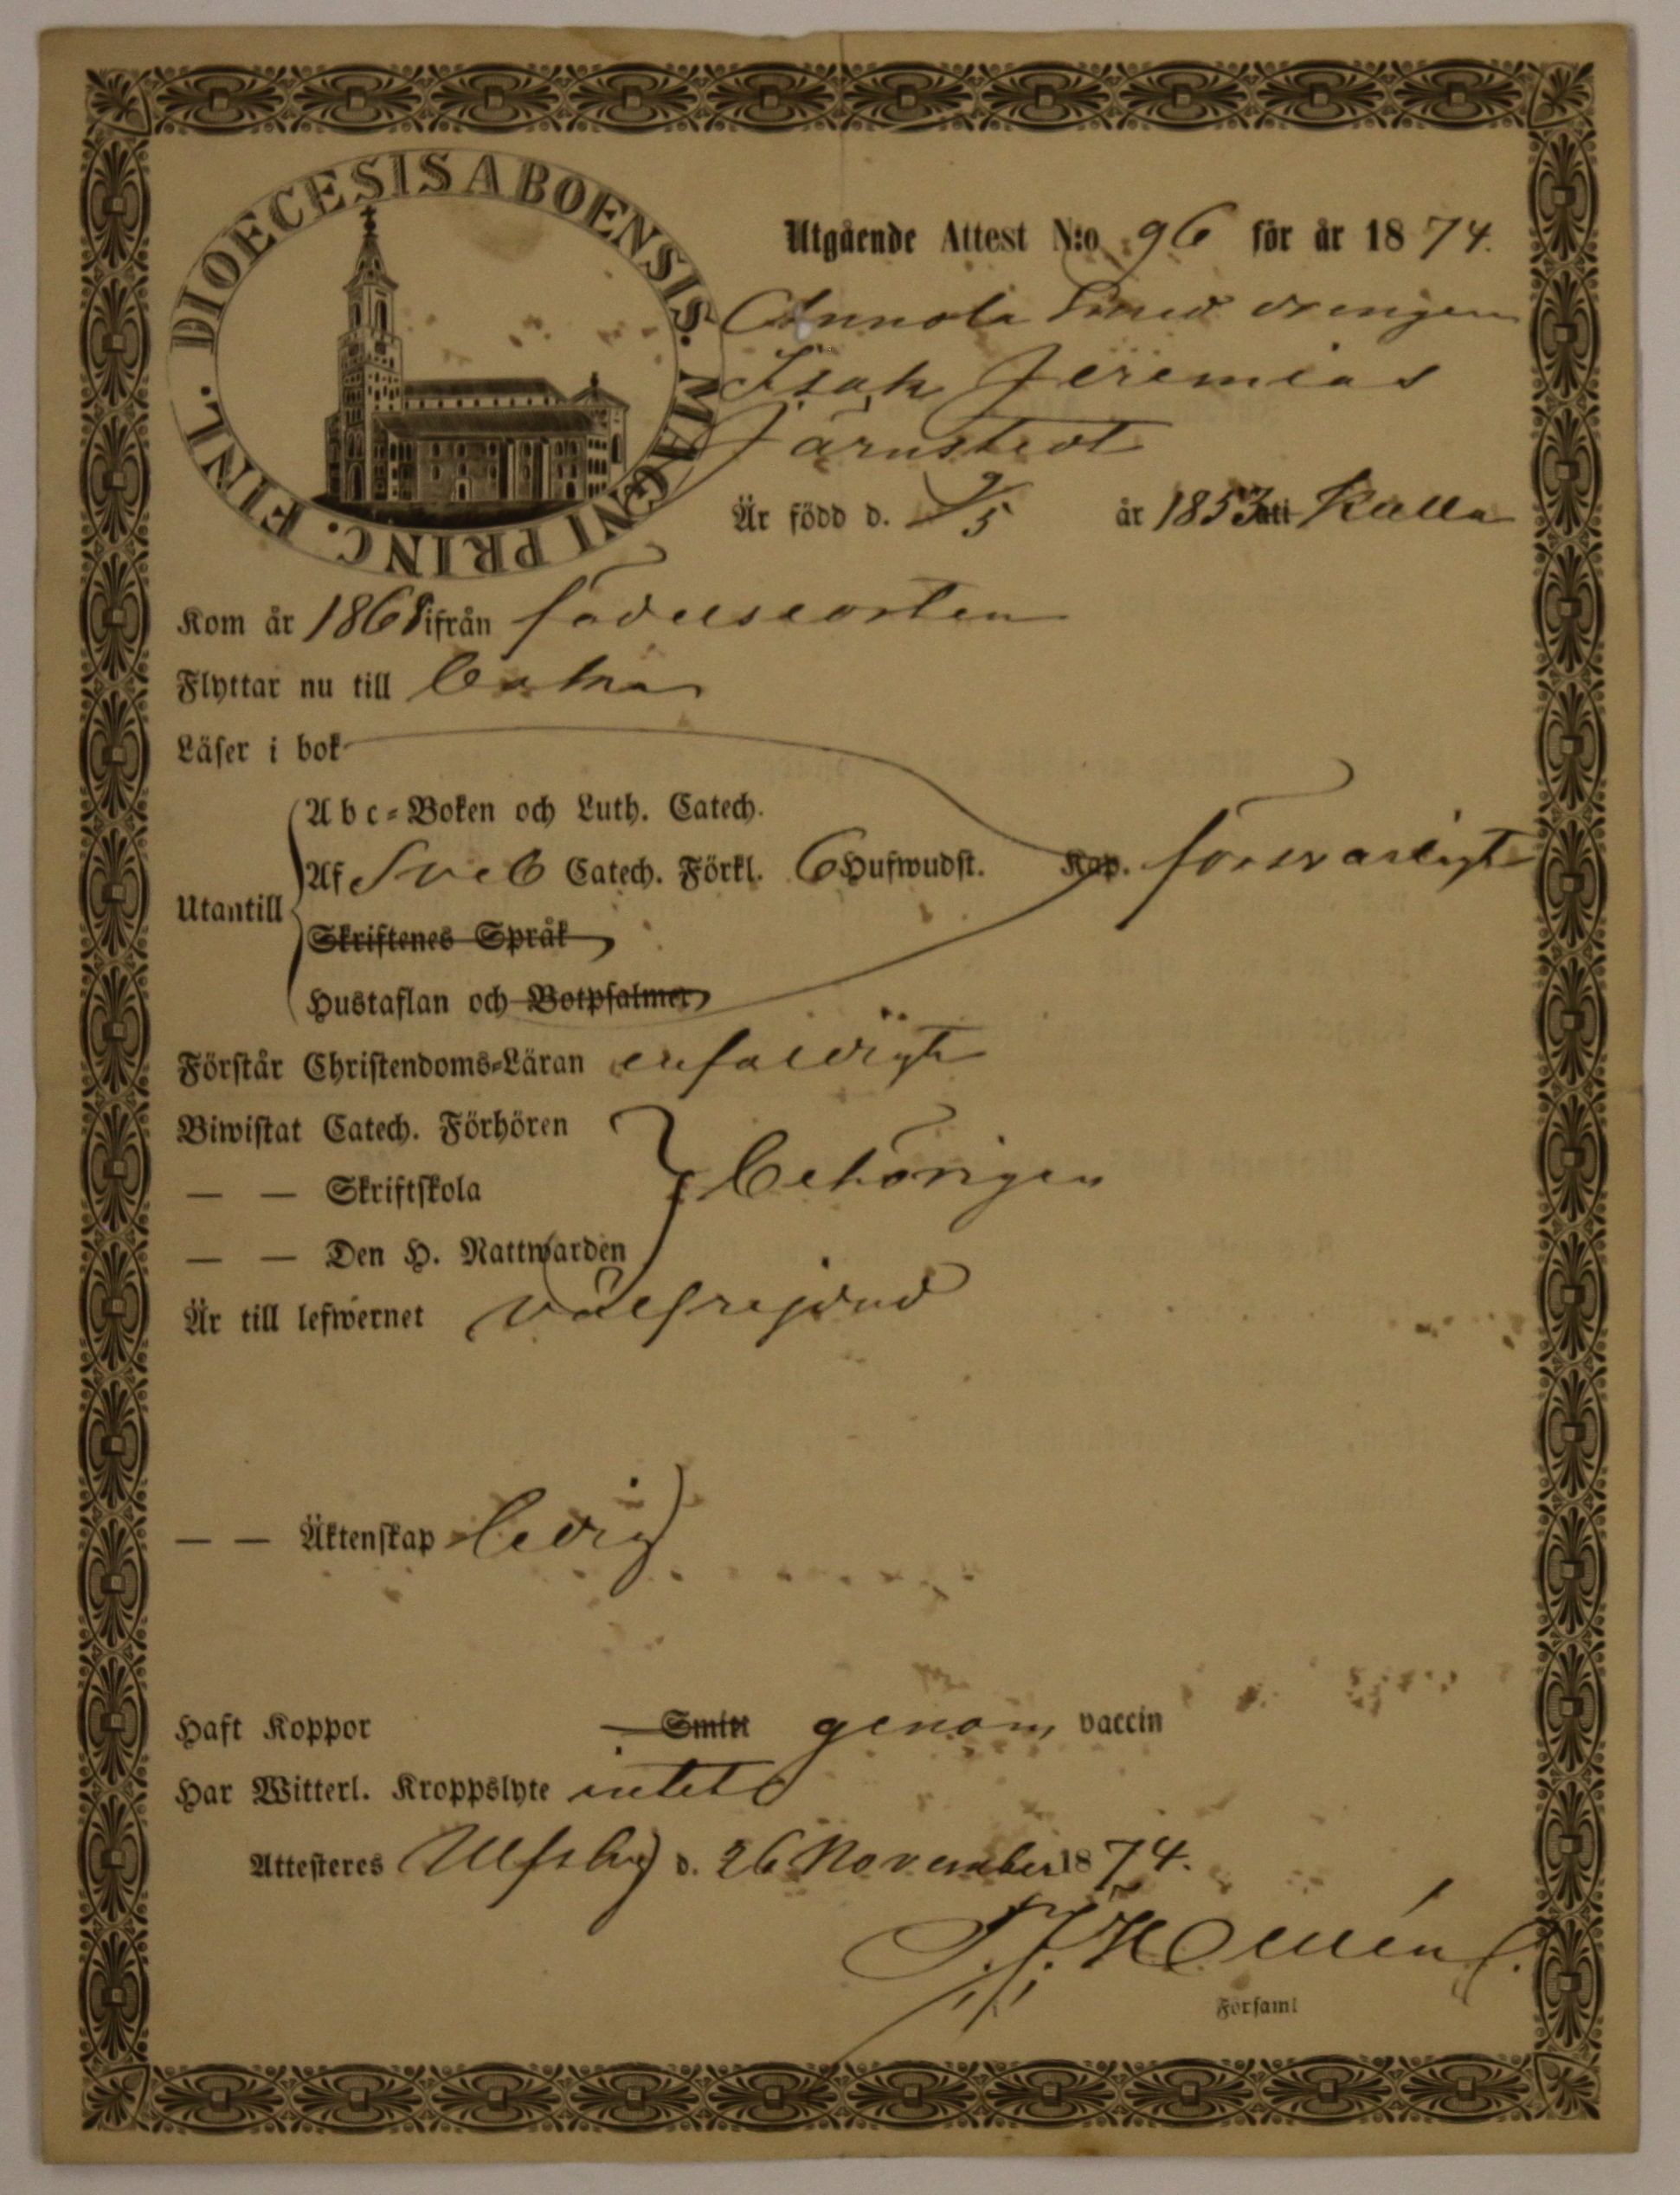 DIOECESIS ABOENSIS. MAGNI PRINC. FINL.
Utgående Attest N:o 96 för år 1874.
Annola Smed drengen
Isak Jeremias
Järnstedt
Är född d. 9/5 år 1853 uti Kulla
Kom år 1868 ifrån födelseorten
Flyttar nu till
Läser i bok
Utantill
Abc-Boken och Luth. Catech.
Af Sveb Catech. Förkl. 6 Hufwudst. Kap. försvarligt
Skriftenes Språk
Hustaflan och Botpsalmer
Förstår Christendoms-Läran enfaldigt
Biwistat Catech. Förhören
— — Skriftskola behörigen
— — Den H. Nattwarden
Är till lefwernet välfrejdad
— — Äktenskap ledig
Haft Koppor Smitt genom vaccin
Har Witterl. Kroppslyte intet
Attesteres Ulfsby d. 26 November 1874.
Församl